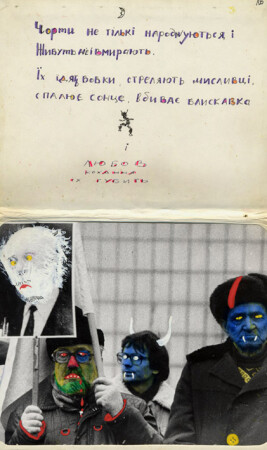 Чорти не тількі народжуються і
живуть, але і вмирають.
Їх їдять вовки, стреляють мисливці,
спалює сонце, вбиває блискавка
і
ЛЮБОВ
губить